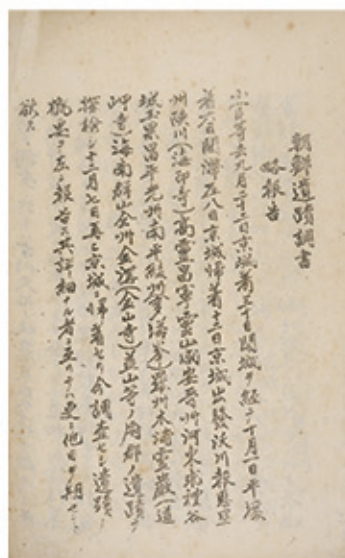 朝鮮遺蹟調書
略報告
小官等去九月二十三日京城着三十日開城ヲ経テ十月一日平壌
着六日開滞在八日京城帰着十三日京城出發沃川報恩
州陝川(海印寺)高霊昌寧霊山咸安晋州河東求禮谷
城玉果昌平光州南平綾州寧羅州木浦霊巌(道
岬寺)海南群山全州金溝(金山寺)益山等ノ府郡ノ遺蹟ヲ
探檢シ十二月七日再ヒ京城ニ帰着セリ今調査セシ遺蹟ノ
概要ヲ左ニ報告シ其詳細ナル者ニ至リテハ更ニ他日ヲ期セント
欲ス